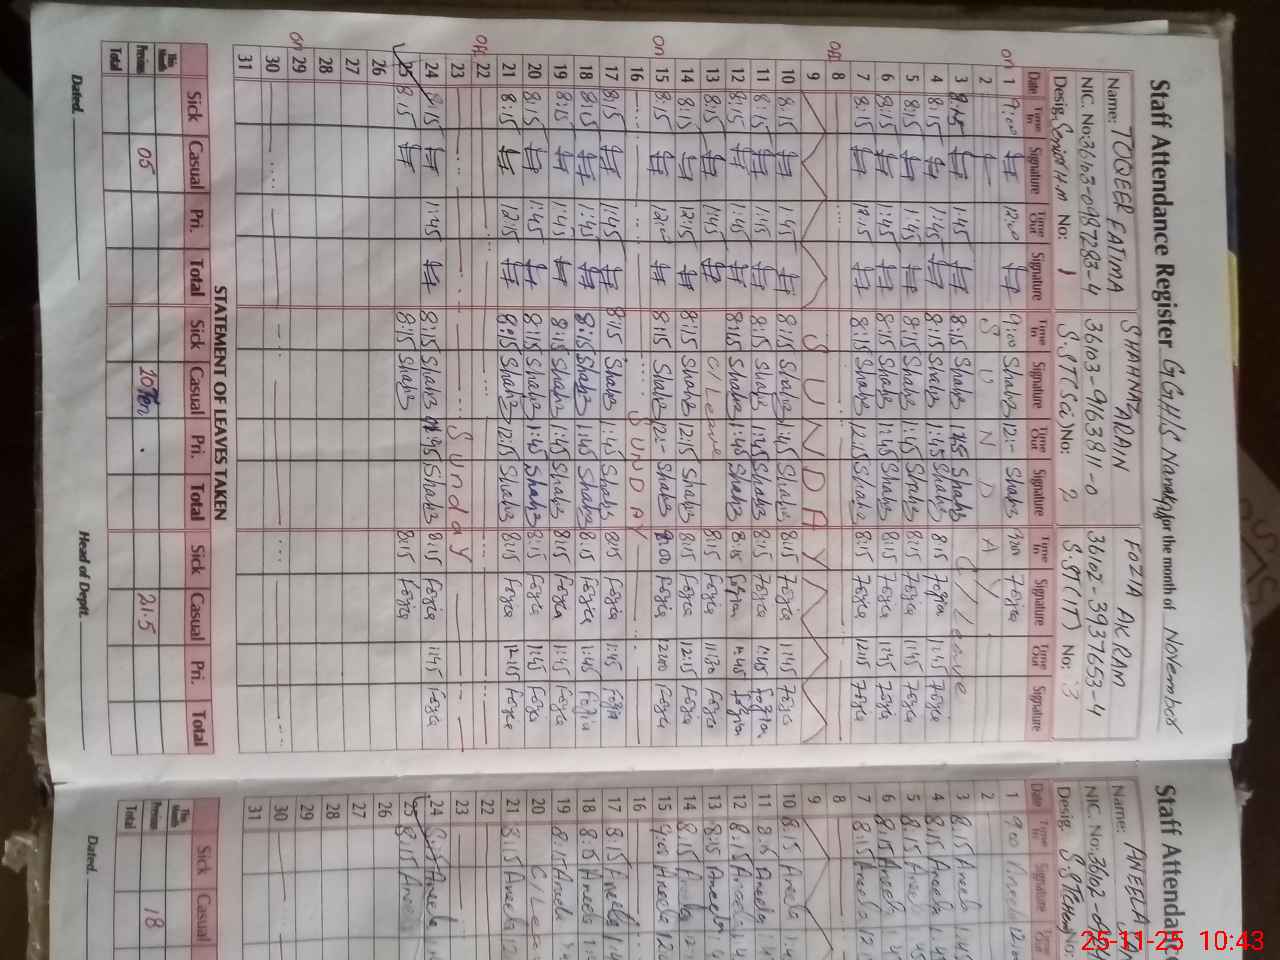 Staff Attendance Register G.G.H/S for the month of November
Name: TOQEER FATIMA SHAHNAZ ARAIN FOZIA AKRAM
NIC. No: 36103-0987283-4 36103-9163811-0 36102-3937653-4
Desig. Senior H.M No: 1 S.ST(Sci) No: 2 S.ST(IT) No: 3
Date Time In Signature Time Out Signature Time In Signature Time Out Signature Time In Signature Time Out Signature
on 1 9:00 12:00 9:00 Shahz 12:- Shahz 9:00 Fozia
2 S U N D A Y
3 8:15 1:45 8:15 Shahz 1:45 Shahz C/Leave
4 8:15 1:45 8:15 Shahz 1:45 Shahz 8:15 Fozia 1:45 Fozia
5 8:15 1:45 8:15 Shahz 1:45 Shahz 8:15 Fozia 1:45 Fozia
6 8:15 1:45 8:15 Shahz 1:45 Shahz 8:15 Fozia 1:45 Fozia
7 8:15 12:15 8:15 Shahz 12:15 Shahz 8:15 Fozia 12:15 Fozia
off 8
9 S U N D A Y
10 8:15 1:45 8:15 Shahz 1:45 Shahz 8:15 Fozia 1:45 Fozia
11 8:15 1:45 8:15 Shahz 1:45 Shahz 8:15 Fozia 1:45 Fozia
12 8:15 1:45 8:15 Shahz 1:45 Shahz 8:15 Fozia 1:45 Fozia
13 8:15 1:45 C/Leave 8:15 Fozia 11:30 Fozia
14 8:15 12:15 8:15 Shahz 12:15 Shahz 8:15 Fozia 12:15 Fozia
on 15 8:15 12:00 8:15 Shahz 12:- Shahz 9:00 Fozia 12:00 Fozia
16 SUNDAY
17 8:15 1:45 8:15 Shahz 1:45 Shahz 8:15 Fozia 1:45 Fozia
18 8:15 1:45 8:15 Shahz 1:45 Shahz 8:15 Fozia 1:45 Fozia
19 8:15 1:45 8:15 Shahz 1:45 Shahz 8:15 Fozia 1:45 Fozia
20 8:15 1:45 8:15 Shahz 1:45 Shahz 8:15 Fozia 1:45 Fozia
21 8:15 12:15 8:15 Shahz 12:15 Shahz 8:15 Fozia 12:15 Fozia
off 22
23 Sunday
24 8:15 1:45 8:15 Shahz 1:45 Shahz 8:15 Fozia 1:45 Fozia
25 8:15 8:15 Shahz 8:15 Fozia
26
27
28
on 29
30
31
STATEMENT OF LEAVES TAKEN
Sick Casual Pri. Total Sick Casual Pri. Total Sick Casual Pri. Total
This Month
Previous 05 21.5
Total
Dated. Head of Deptt.
Staff Attendanc
Name: ANEELA
NIC. No: 36102-
Desig. No:
Date Time In Signature Time Out
1 9:00 Aneela 12:00
2
3 8:15 Aneela 1:45
4 8:15 Aneela 1:45
5 8:15 Aneela
6 8:15 Aneela
7 8:15 Aneela 12
8
9
10 8:15 Aneela 1:4
11 Aneela
12 8:15 Aneela 1:4
13 8:15 Aneela
14 8:15 Aneela 12
15 9:00 Aneela 12
16
17 8:15 Aneela 1:4
18 8:15 Aneela 1:
19 8:15 Aneela
20 C/Leav
21 8:15 Aneela 12
22
23
24 Aneela
25 8:15 Aneela
26
27
28
29
30
31
Sick Casual
This Month
Previous 18
Total
Dated.
25-11-25 10:43